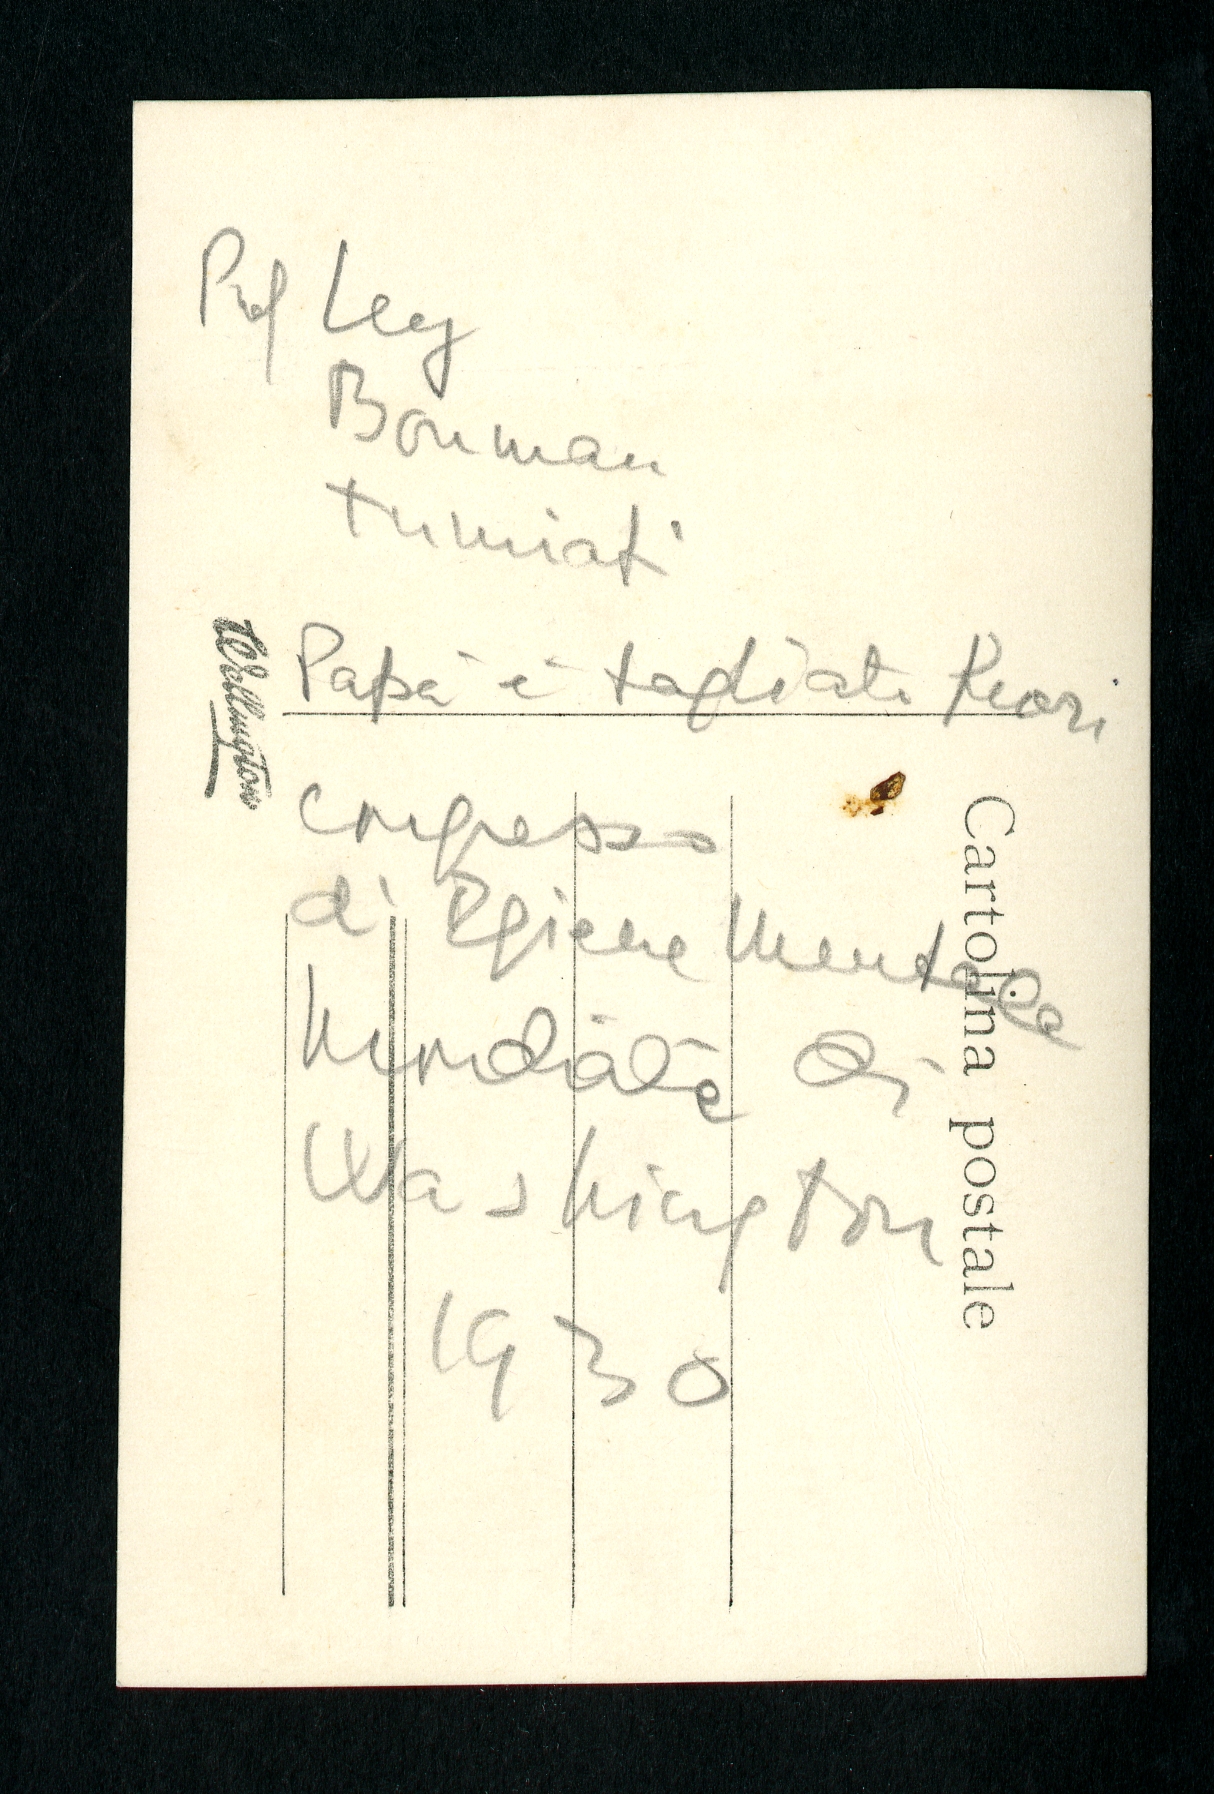 Prof Ley
Bouman
Tumiati
Papà è tagliato fuori
congresso
di Igiene Mentale
Mondiale di
Washington
1930
Wellington
Cartolina postale